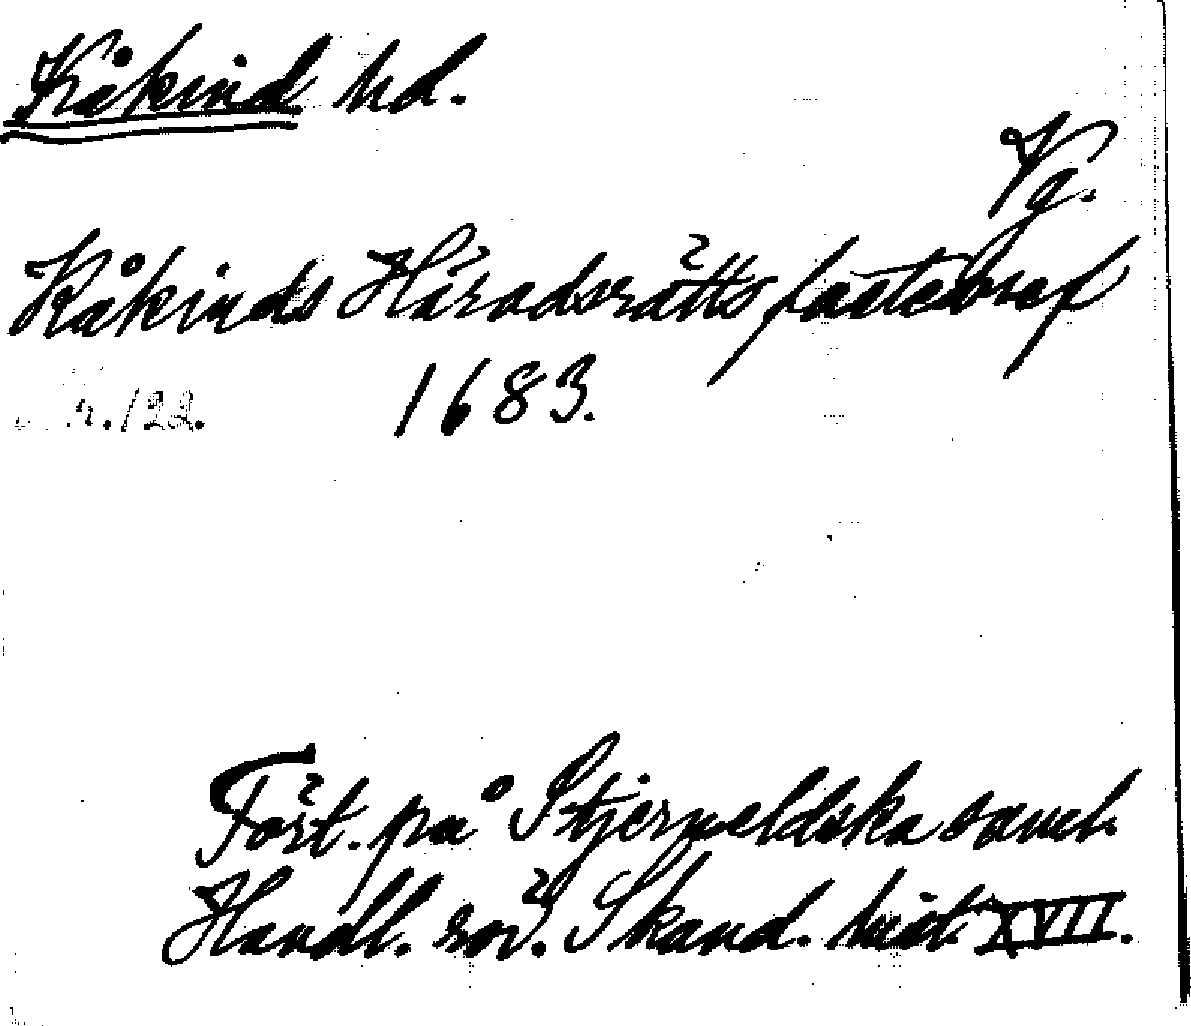 Kåkind hd.
Vg.
Kåkinds Häradsrätts fastebref
1683.
s. 122.
Fört. på Stjerneldska saml.
Handl. rör. Skand. hist. XVII.